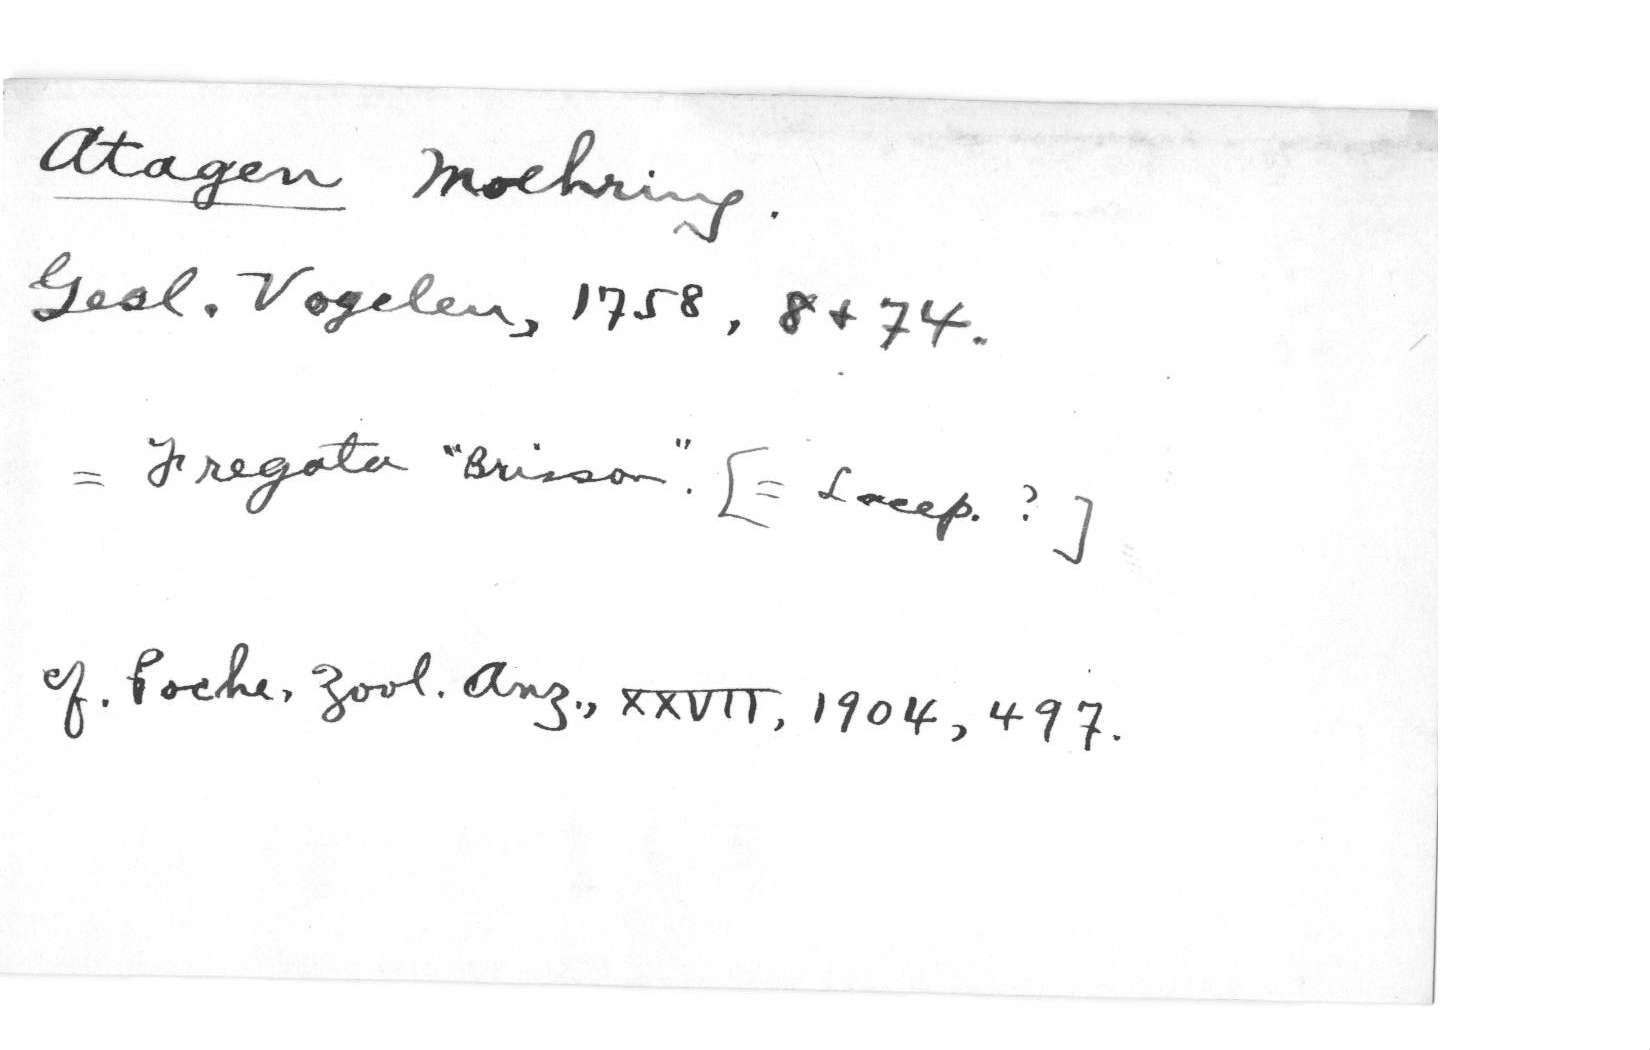 Atagen Moehring.
Gesl. Vogelen, 1758, 8 + 74.
= Fregata "Brisson". [= Lacep. ?]
cf. Poche, Zool. Anz., XXVII, 1904, 497.